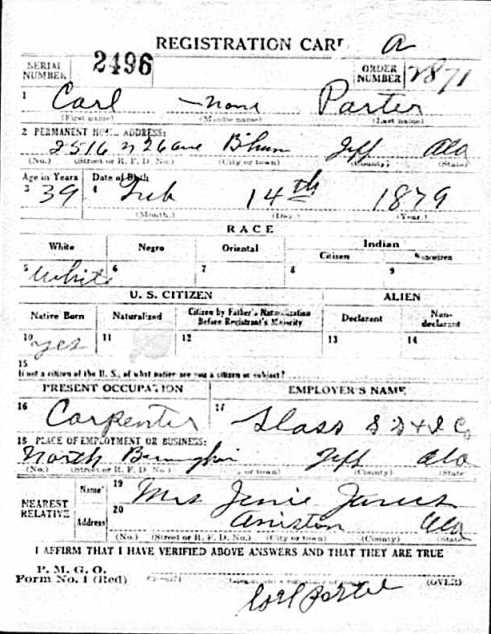 REGISTRATION CARD A
SERIAL NUMBER 2496 ORDER NUMBER 2871
1 Carl None Parter
(First name) (Middle name) (Last name)
2 PERMANENT HOME ADDRESS:
2516 N 26 ave B'ham Jeff Ala
(No.) (Street or R. F. D. No.) (City or town) (County) (State)
Age in Years Date of Birth
3 39 4 Feb 14th 1879
(Month.) (Day.) (Year.)
RACE
White Negro Oriental Indian
Citizen Noncitizen
5 White 6 7 8 9
U. S. CITIZEN ALIEN
Native Born Naturalized Citizen by Father's Naturalization Before Registrant's Majority Declarant Non-declarant
10 yes 11 12 13 14
15
If not a citizen of the U. S., of what nation are you a citizen or subject?
PRESENT OCCUPATION EMPLOYER'S NAME
16 Carpenter 17 S S & I Co
18 PLACE OF EMPLOYMENT OR BUSINESS:
North Jeff Ala
(No.) (Street or R. F. D. No.) (City or town) (County) (State)
NEAREST RELATIVE
Name 19 Mrs Janie
Address 20 Aniston Ala
(No.) (Street or R. F. D. No.) (City or town) (County) (State)
I AFFIRM THAT I HAVE VERIFIED ABOVE ANSWERS AND THAT THEY ARE TRUE
P. M. G. O.
Form No. 1 (Red) (OVER)
Carl Parter